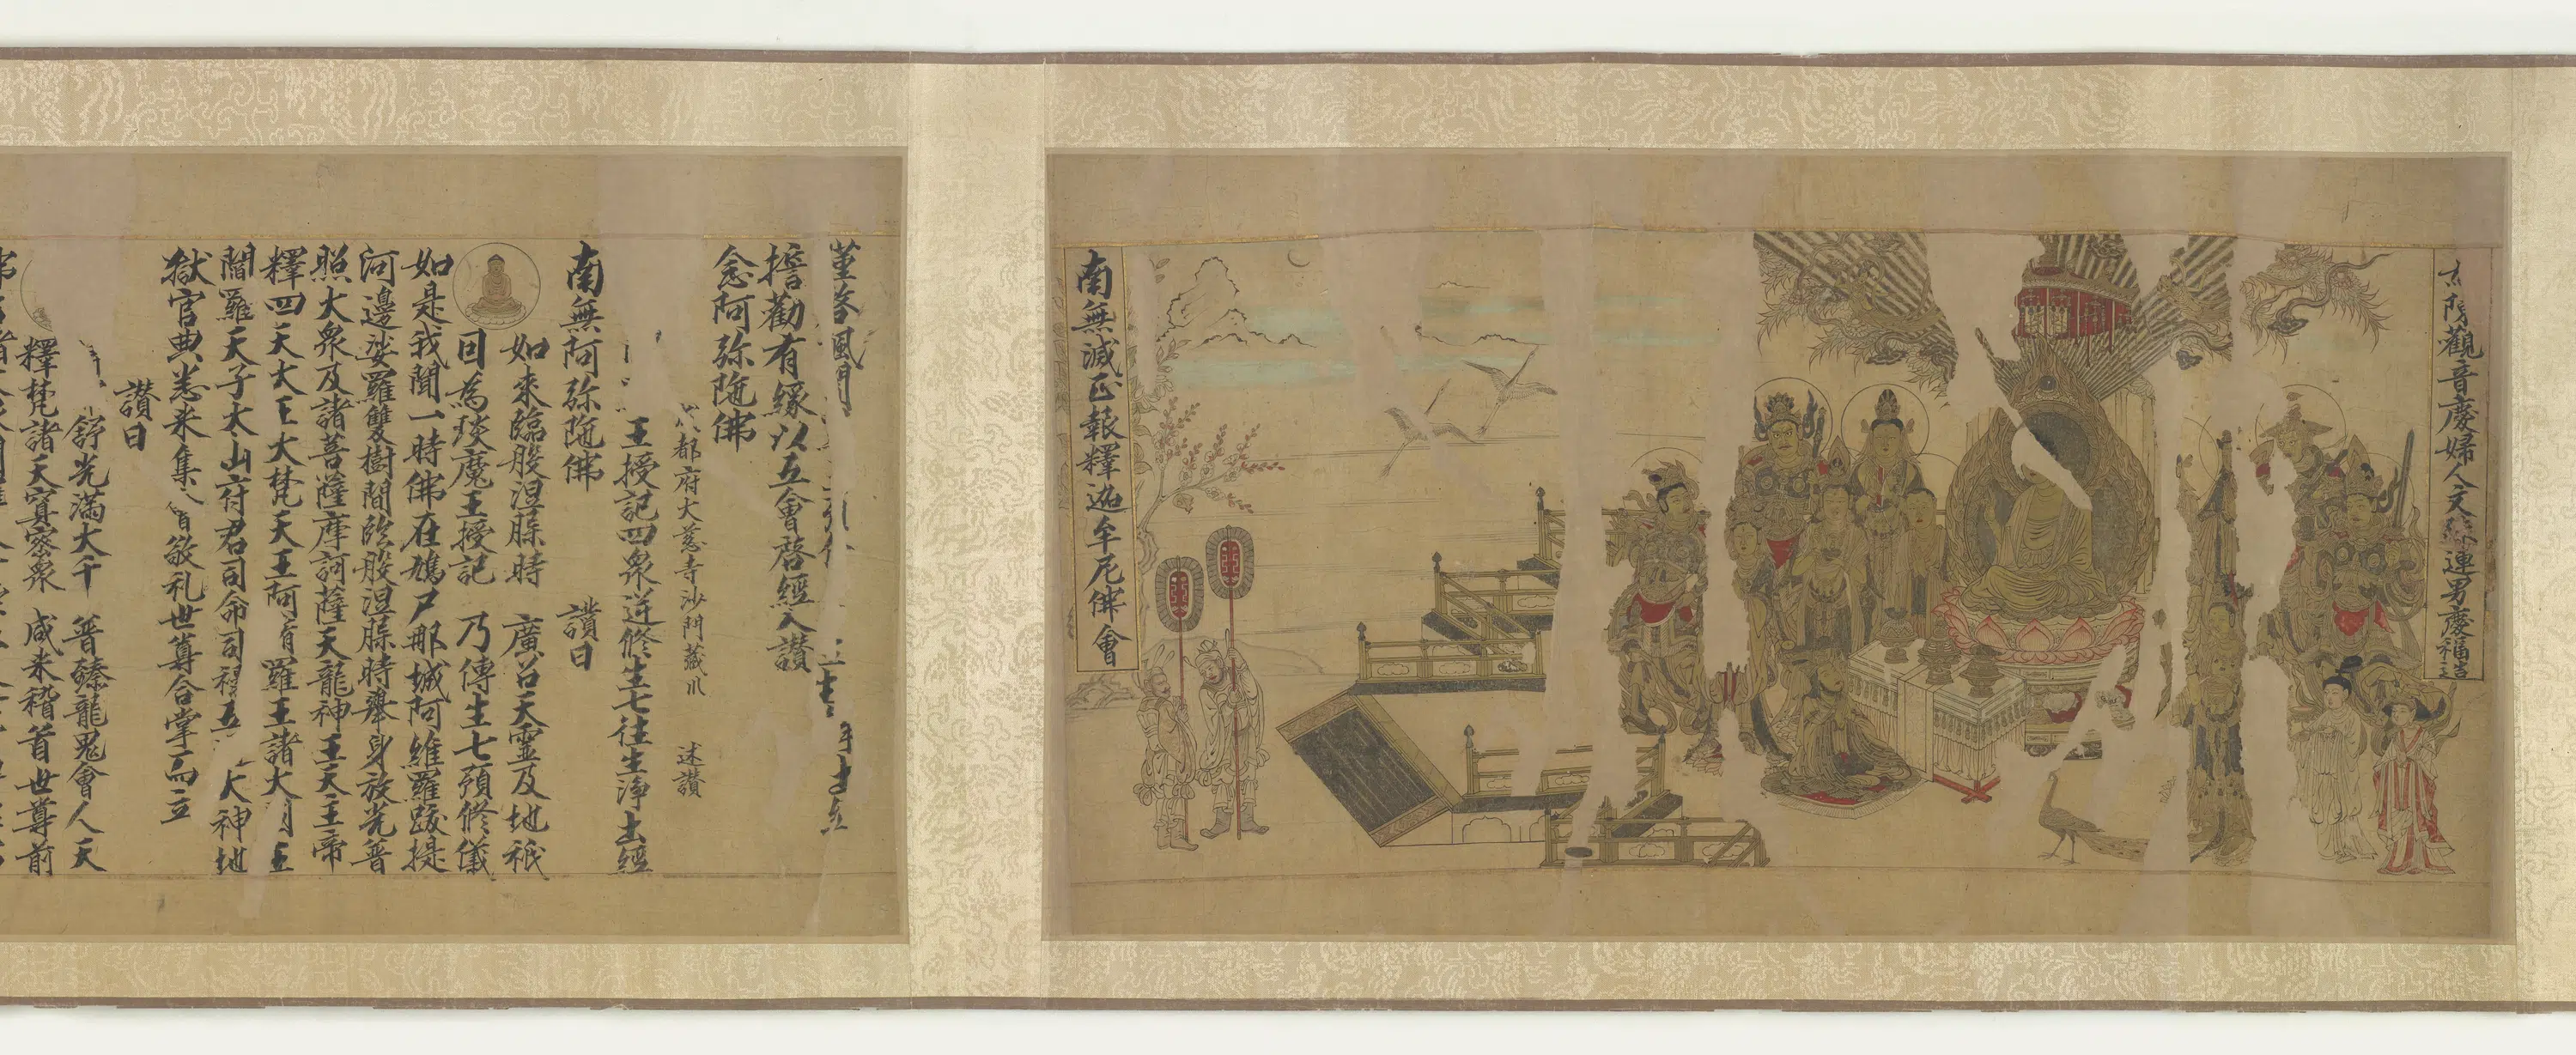 觀音慶婦人文 連男慶福造
南無滅正報釋迦牟尼佛會
風
誓勸有緣以五會啓經入讚
念阿弥陁佛
都府大慈寺沙門藏川 述讚
王授記四衆逆修生七往生淨土經
南無阿弥陁佛 讚曰
如來臨般涅槃時 廣召天靈及地祇
因為琰魔王授記 乃傳生七預修儀
如是我聞一時佛在鳩尸那城阿維羅跋提
河邊娑羅雙樹間臨般涅槃時舉身放光普
照大衆及諸菩薩摩訶薩天龍神王天主帝
釋四天大王大梵天王阿脩羅王諸大王
閻羅天子太山府君司命司祿五大神地
獄官典悉来集敬礼世尊合掌而立
讚曰
舒光滿大千 普臻龍鬼會人天
釋梵諸天冥密衆 咸来稽首世尊前